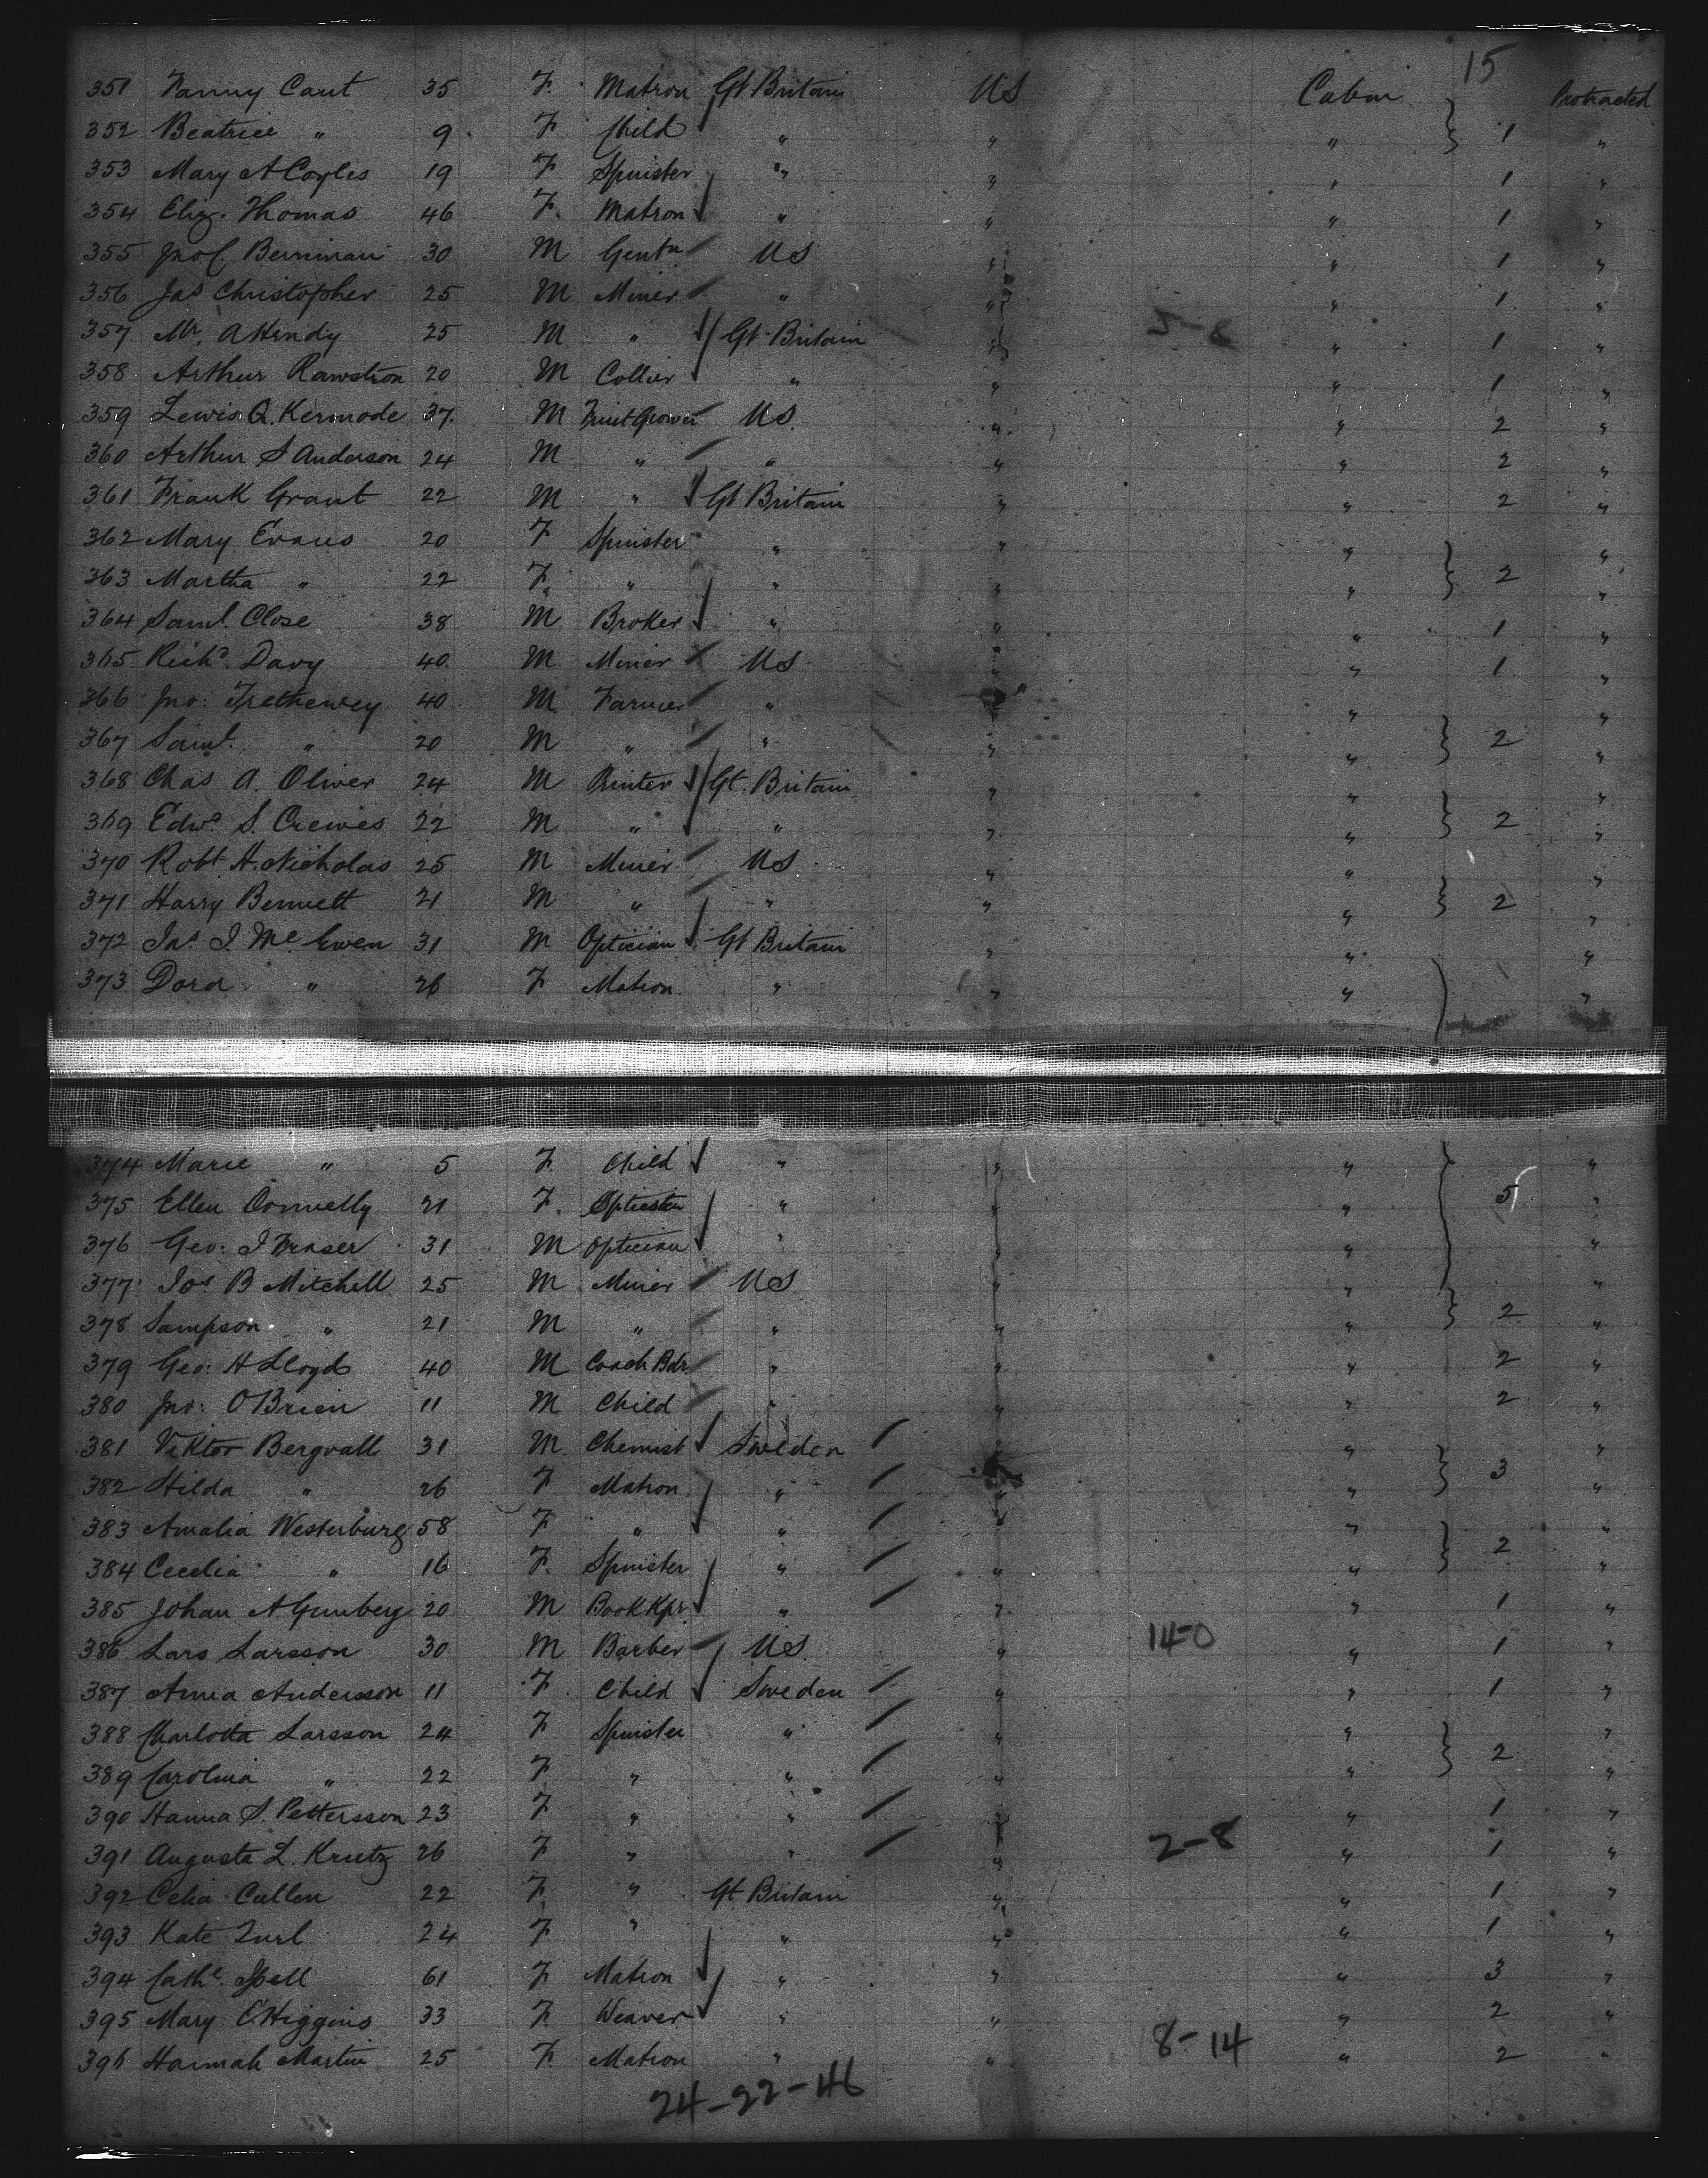 15
351 Fanny Caut 35 F. Matron Gt Britain US Cabin Protracted
352 Beatrice " 9 F Child " " " 1 "
353 Mary A Coyles 19 F Spinister " " " 1 "
354 Eliz. Thomas 46 F. Matron " " " 1 "
355 Jno C. Berriman 30 M Gentn US " " 1 "
356 Jas Christopher 25 M Miner " " " 1 "
357 Mr. A Hendy 25 M " Gt Britain " 5-8 " 1 "
358 Arthur Rawstron 20 M Collier " " " 1 "
359 Lewis Q. Kermode 37 M Fruit Grower US. " " 2 "
360 Arthur S Anderson 24 M " " " " 2 "
361 Frank Grant 22 M " Gt Britain " " 2 "
362 Mary Evans 20 F Spinister " " " "
363 Martha " 22 F. " " " " 2 "
364 Saml. Close 38 M Broker " " " 1 "
365 Richd. Davy 40 M Miner US " " 1 "
366 Jno: Trethewey 40 M Farmer " " " "
367 Saml. " 20 M " " " " 2 "
368 Chas A. Oliver 24 M Printer Gt. Britain " " "
369 Edwd S. Crewes 22 M " " " " 2 "
370 Robt H. Nicholas 25 M Miner US " " "
371 Harry Bennett 21 M " " " " 2 "
372 Jas J. Mc Ewen 31 M Optician Gt Britain " " "
373 Dora " 26 F Matron " " " "
374 Marie " 5 F. Child " " " "
375 Ellen Connelly 21 F. " " " 5 "
376 Geo: J Fraser 31 M Optician " " " "
377 Jos B Mitchell 25 M Miner US " " "
378 Sampson " 21 M " " " " 2 "
379 Geo: H Lloyd 40 M Coach Bdr. " " " 2 "
380 Jno: O'Brien 11 M Child " " " 2 "
381 Viktor Bergvall 31 M Chemist Sweden " " "
382 Hilda " 26 F Matron " " " 3 "
383 Amalia Westerburg 58 F " " " " "
384 Cecelia " 16 F. Spinister " " " 2 "
385 Johan A. Gunberg 20 M BookKpr. " " " 1 "
386 Lars Larsson 30 M Barber US. " 14-0 " 1 "
387 Anna Andersson 11 F Child Sweden " " 1 "
388 Charlotta Larsson 24 F Spinister " " " "
389 Carolina " 22 F " " " " 2 "
390 Hanna S. Pettersson 23 F " " " " 1 "
391 Augusta L. Krutz 26 F " " " 2-8 " 1 "
392 Celia Cullen 22 F " Gt Britain " " 1 "
393 Kate Turl 24 F " " " " 1 "
394 Cathe. Spell 61 F Matron " " " 3 "
395 Mary E Higgins 33 F Weaver " " " 2 "
396 Hannah Martin 25 F Matron " " 8-14 " 2 "
24-22-46